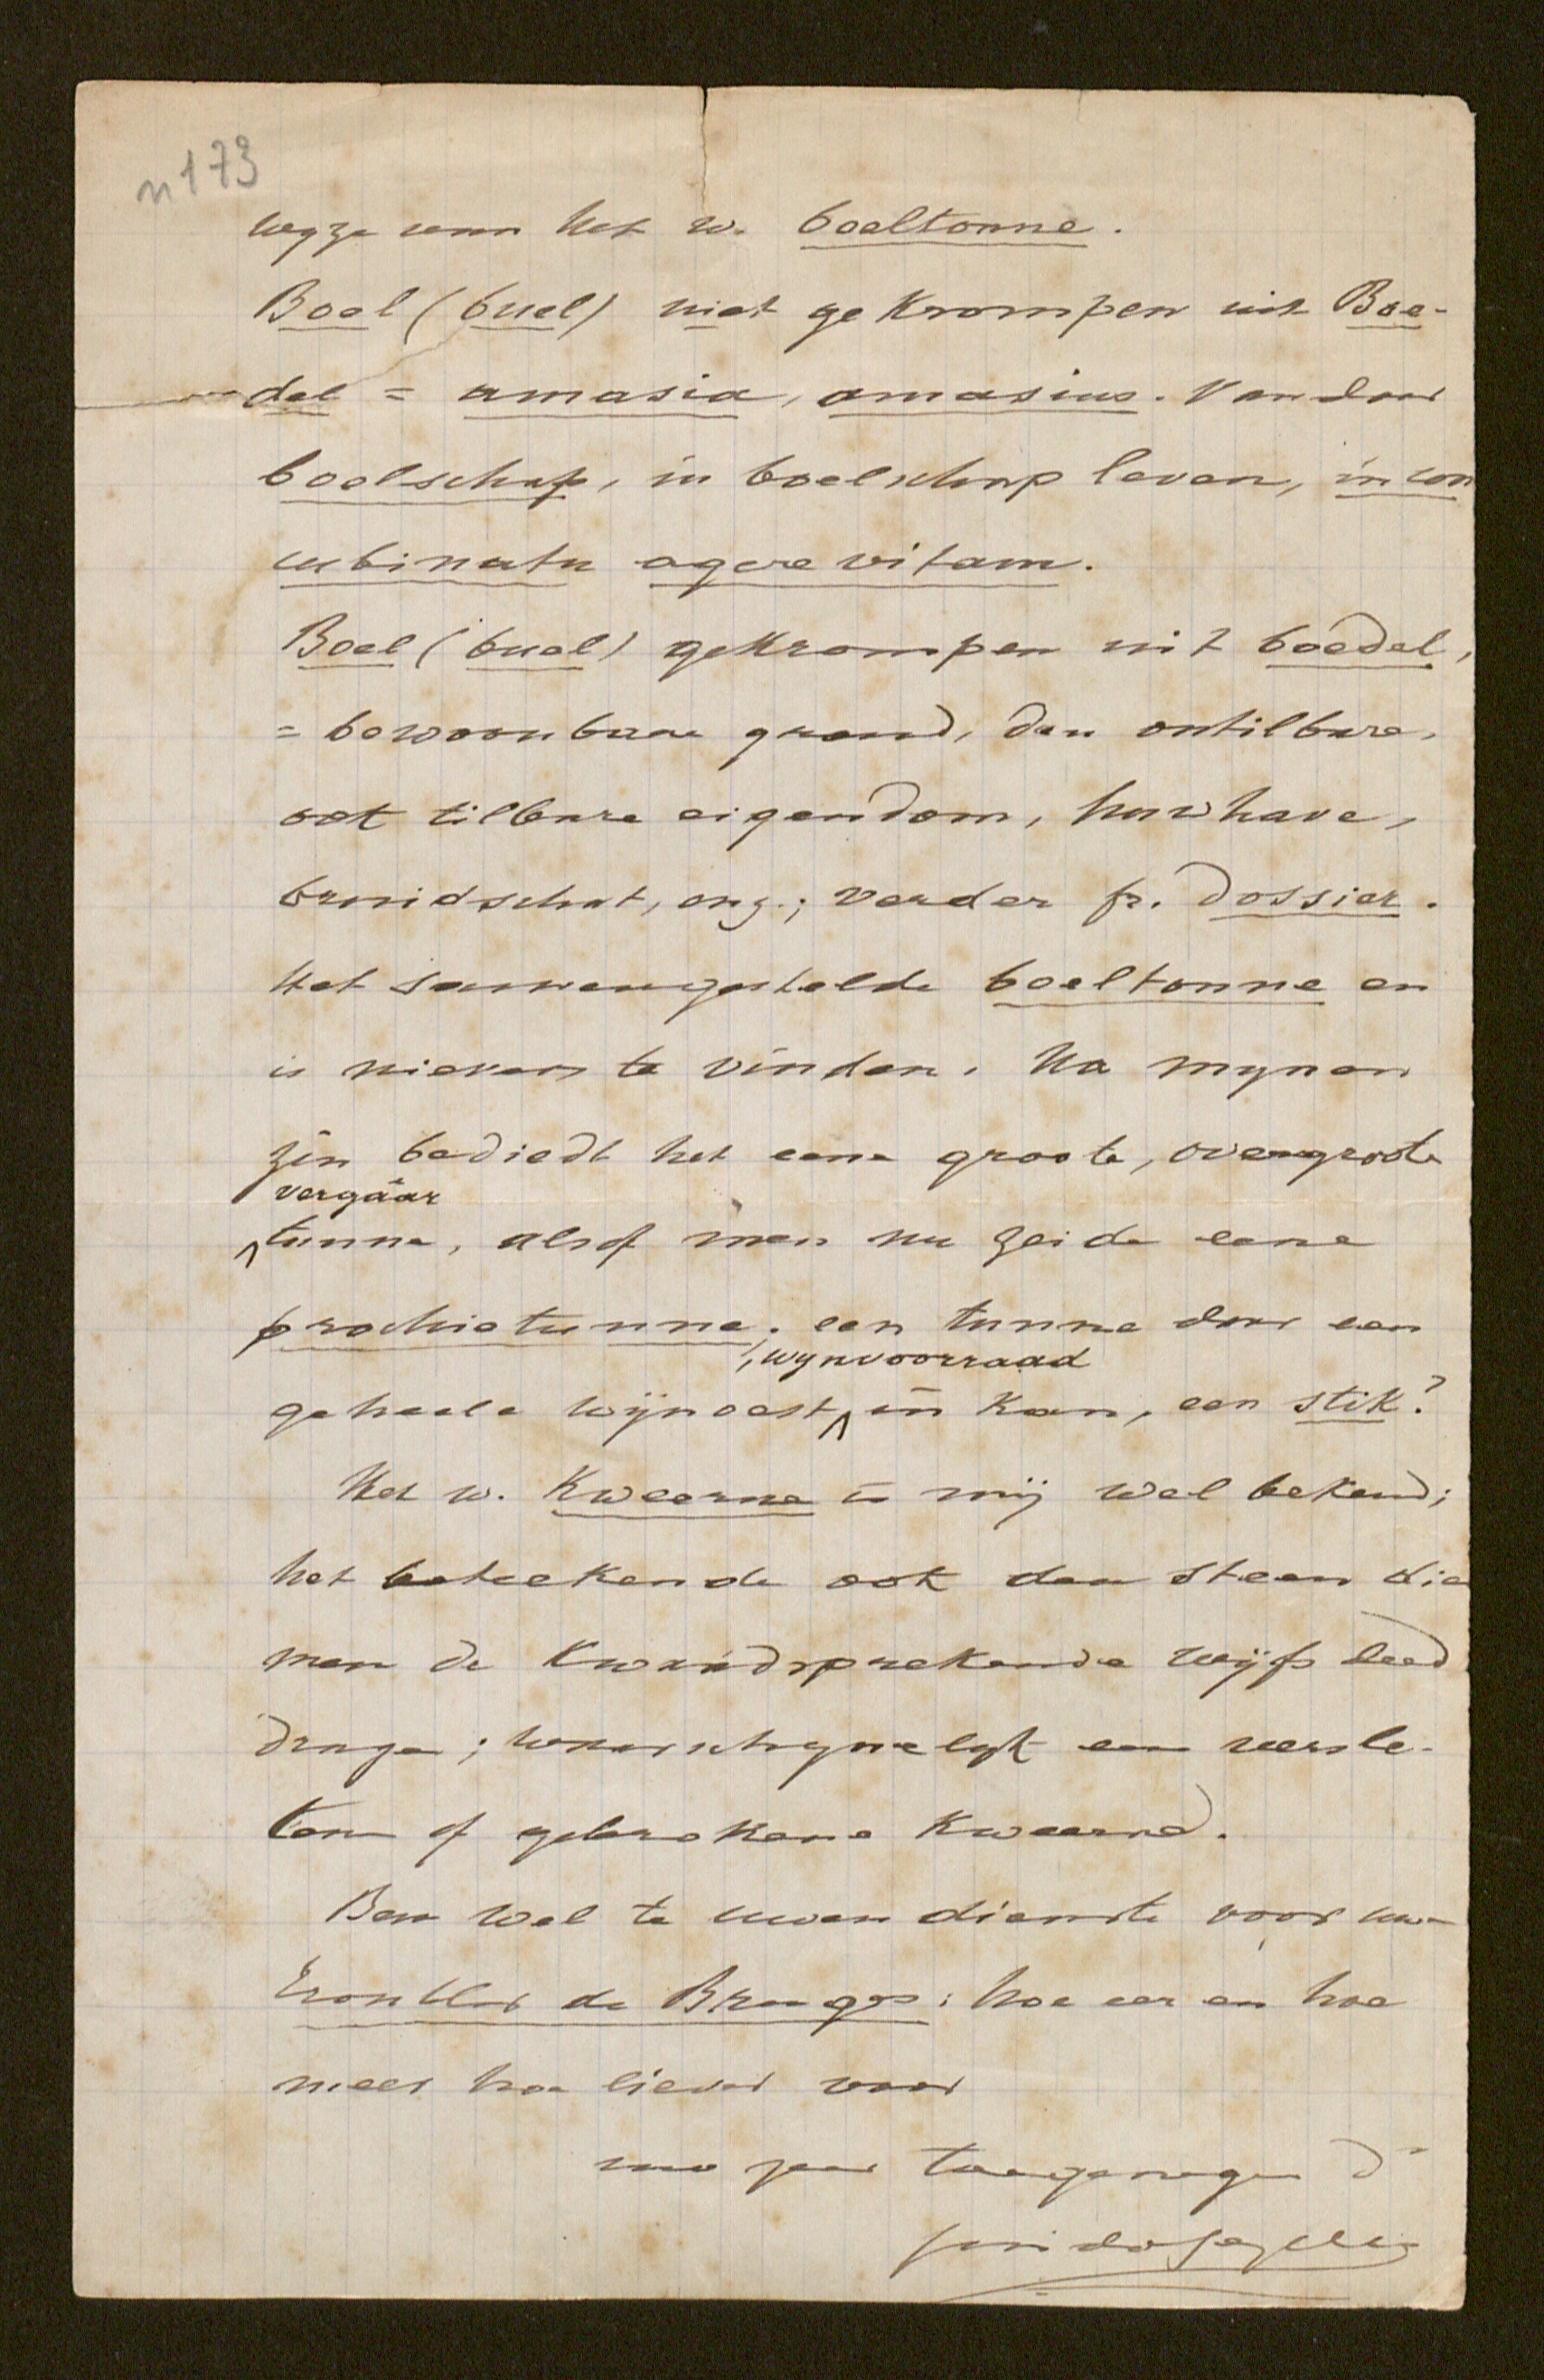 n 173
wyze van het w. boeltonne.
Boel (buel) niet gekrompen uit Boe-
del = amasia, amasius. Van daar
boelschap, in boelschap leven, in con
cubinatu agere vitam.
Boel (buel) gekrompen uit boedel,
= bewoonbare grond, dan ontilbare,
ook tilbare eigendom, huwhave,
bruidschat, enz.; verder fr. dossier.
Het saamengestelde boeltonne en
is nievers te vinden. Na mynen
zin bediedt het eene groote, overgroote
vergaar
^tunne, alsof men nu zeide eene
prochietunne; een tunne daar een
, wynvoorraad
geheele wijnoest ^ in kan, een stik?
Het w. Kweerne is mij wel bekend;
het beteekende ook den steen die
men de kwaadsprekende wijfs deed
dragen; waarschynelyk een versle-
ten of gebrokene kweerne.
Ben wel te uwen dienste voor uwe
de Bruges: hoe eer en hoe
meer hoe liever voor
uwe zeer toegenegen d
Guido Gezelle